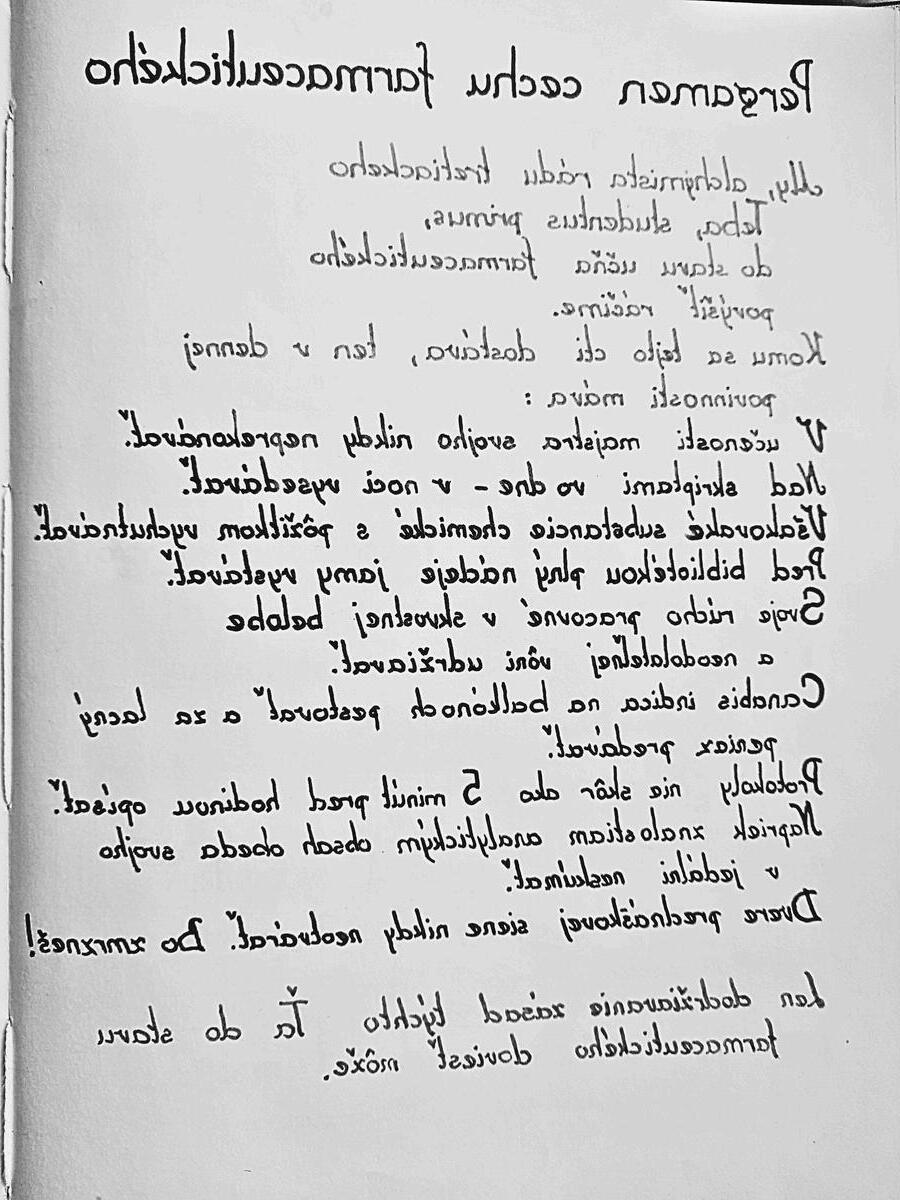 Pergamen cechu farmaceutického
My, alchýmista rádu tretiackeho
Teba, studentus primus,
do stavu učňa farmaceutického
povýšiť ráčime.
Komu sa tejto cti dostáva, ten v dennej
povinnosti máva :
V učenosti majstra svojho nikdy neprekonávať.
Nad skriptami vo dne - v noci vysedávať.
Všakovaké substancie chemické s pôžitkom vychutnávať.
Pred bibliotékou plný nádeje jamy vystávať.
Svoje rúcho pracovné v skvostnej belobe
a neodolateľnej vôni udržiavať.
Canabis indica na balkónoch pestovať a za lacný
peniaz predávať.
Protokoly nie skôr ako 5 minút pred hodinou opísať.
Napriek znalostiam analytickým obsah obeda svojho
v jedálni neskúmať.
Dvere prednáškovej siene nikdy neotvárať. Bo zmrzneš!
Len dodržiavanie zásad týchto Ťa do stavu
farmaceutického doviesť môže.